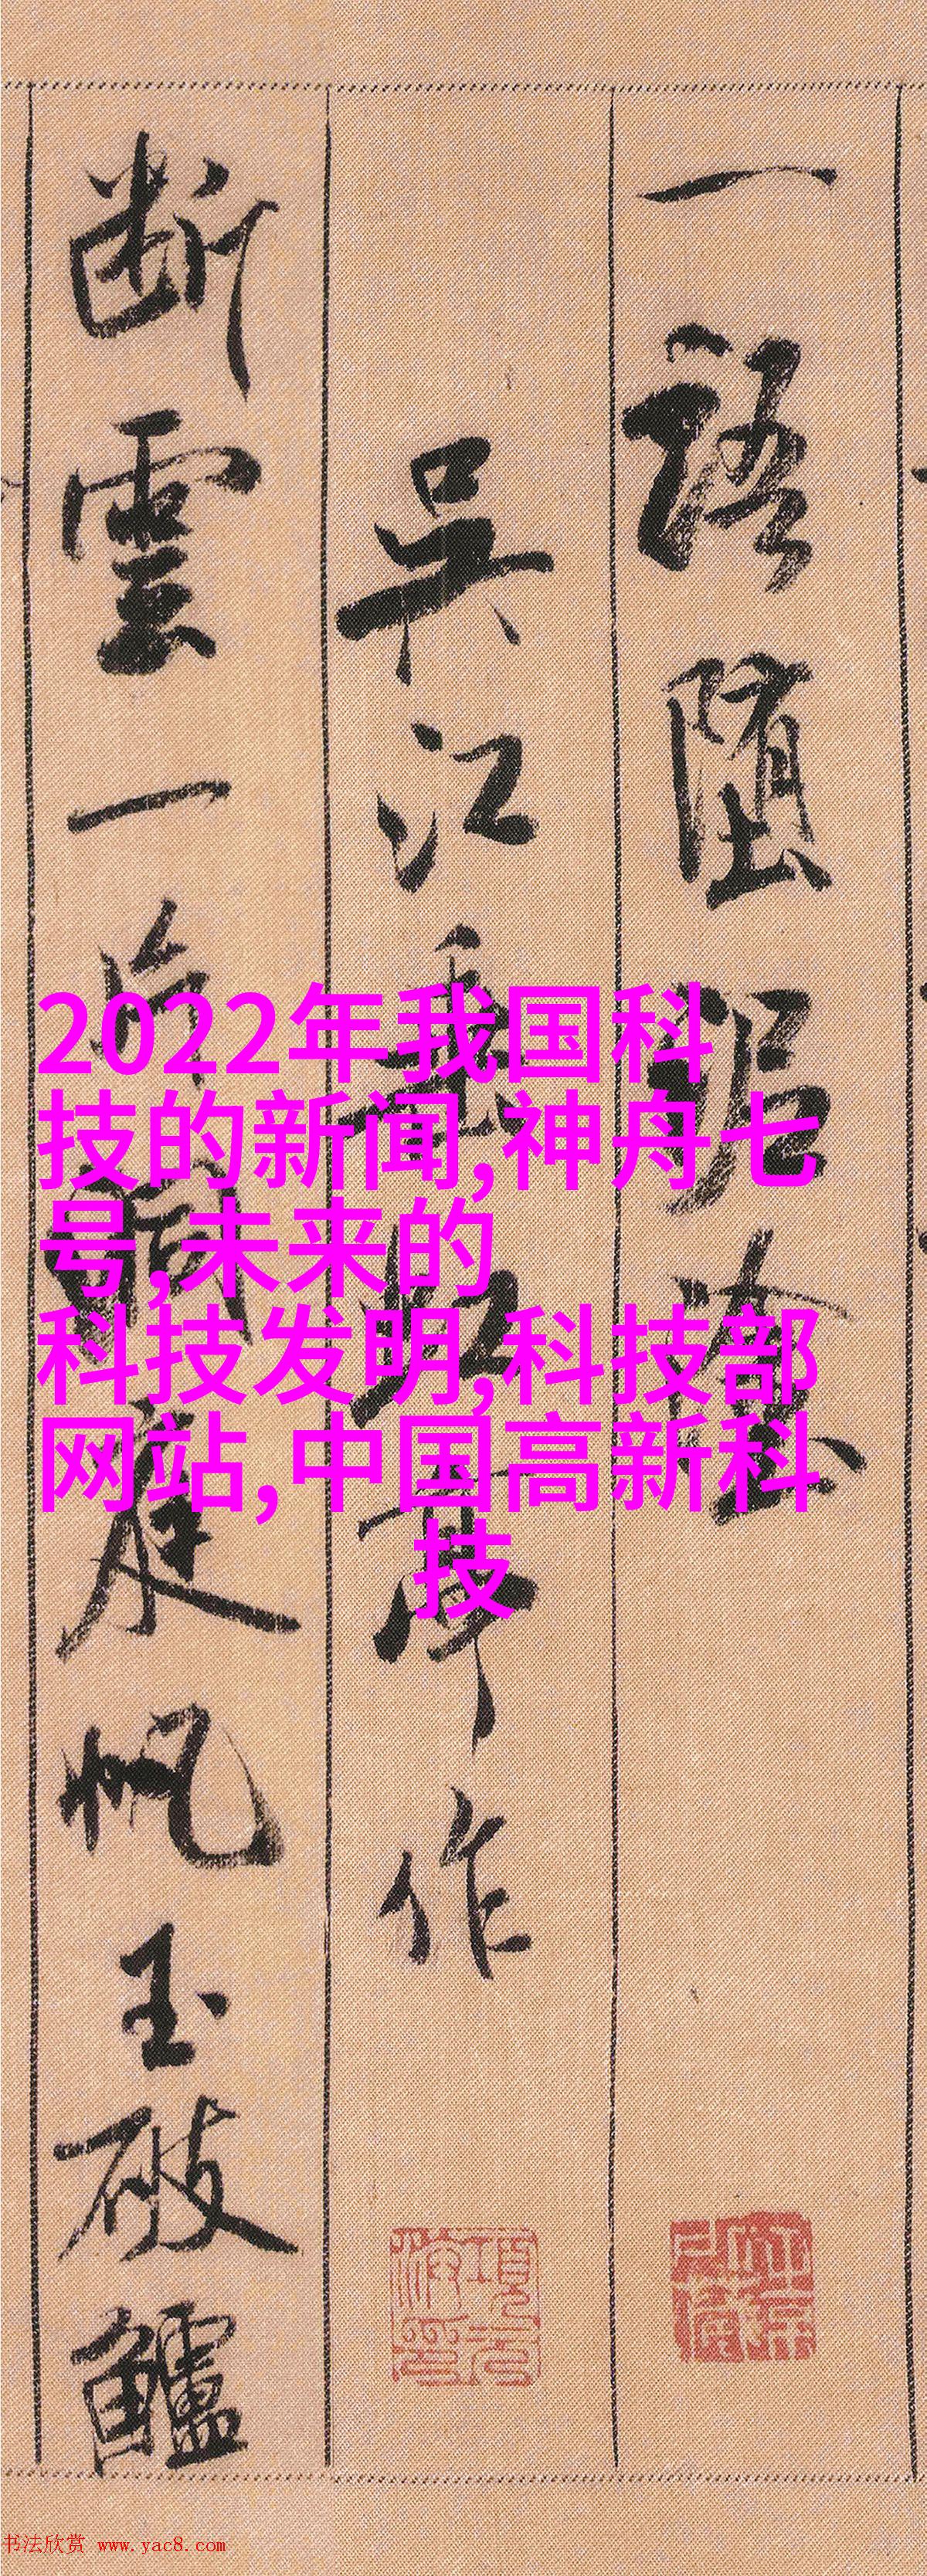 一語墮泥塗
吳江垂虹亭作
断雲一片洞庭帆玉破鱸
2022年我国科
技的新闻,神舟七
号,未来的
科技发明,科技部
网站,中国高新科
技
书法欣赏 www.yac8.com